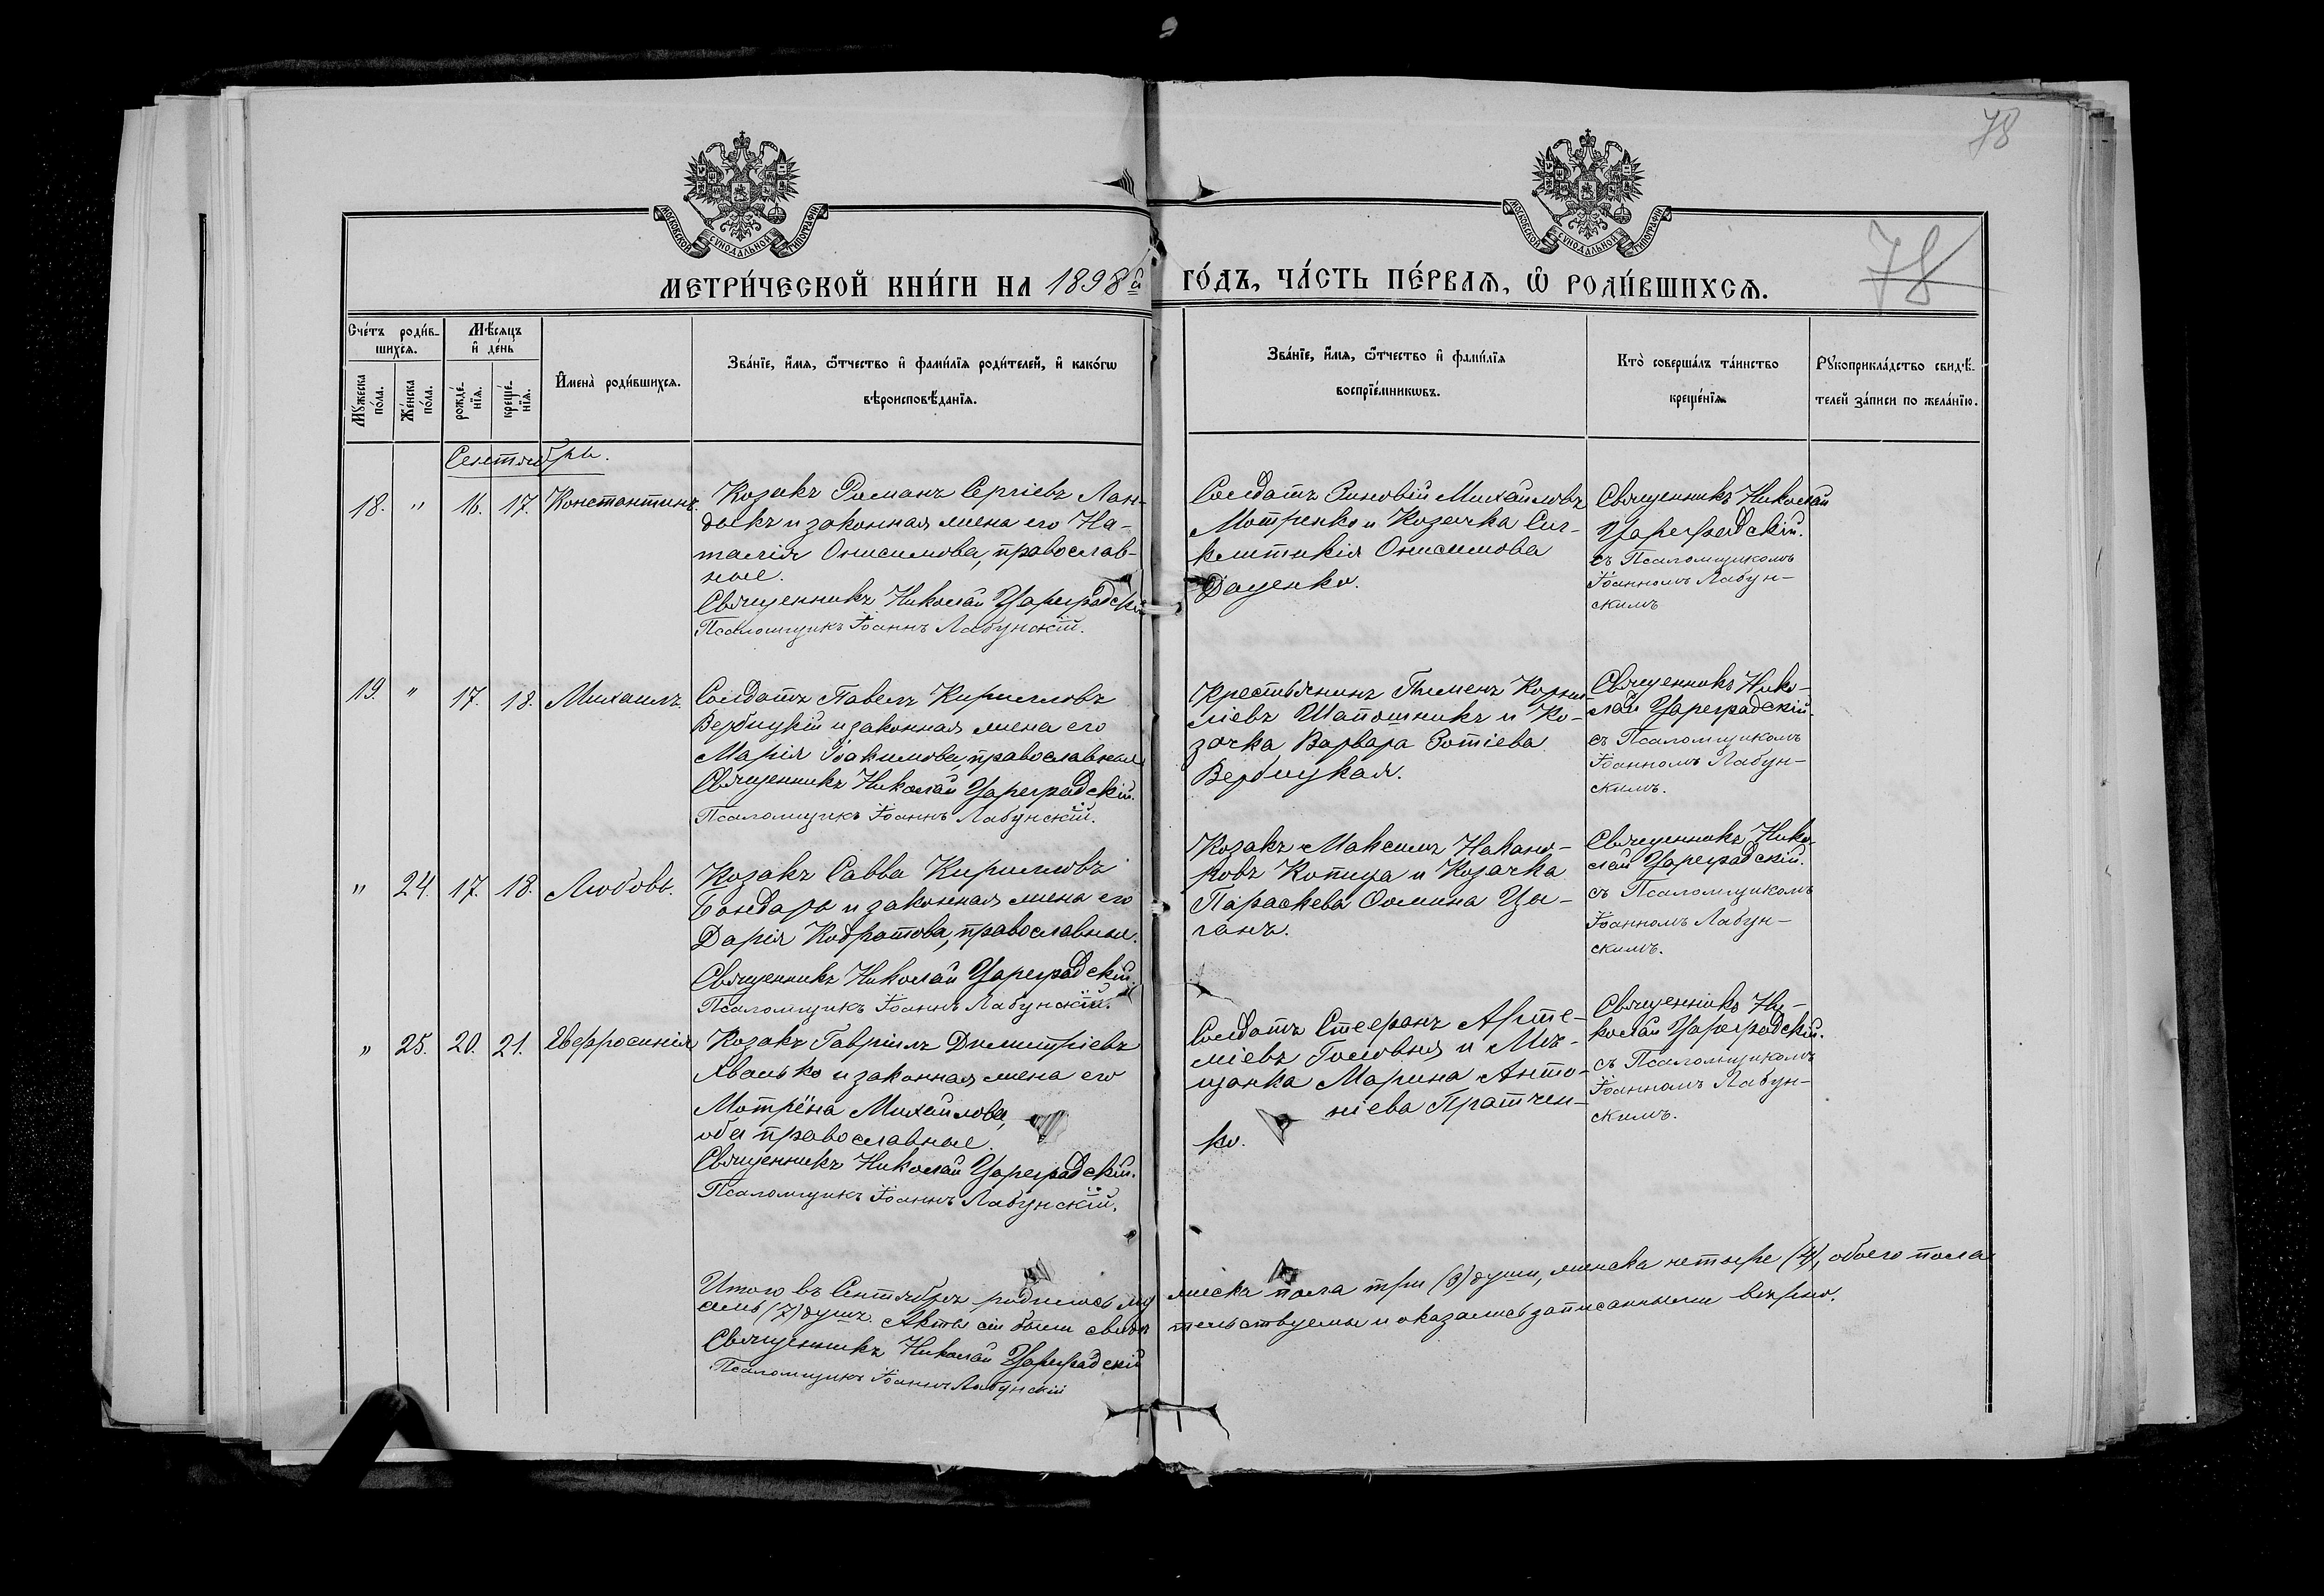 78
78
МОСКОВСКОЙ СѴНОДАЛЬНОЙ ТИПОГРАФІИ
МОСКОВСКОЙ СѴНОДАЛЬНОЙ ТИПОГРАФІИ
МЕТРИ́ЧЕСКОЙ КНИ́ГИ НА 1898й ГО́ДЪ, ЧА́СТЬ ПЕ́РВАѦ, Ѽ РОДИ́ВШИХСѦ.
Сче́тъ роди́в-
шихсѧ.
Мꙋ́жеска
по́ла.
Же́нска
по́ла.
Мѣ́сѧцъ
и҆ де́нь
рожде́-
нїѧ.
креще́-
нїѧ.
И҆мена̀ роди́вшихсѧ.
Зва́нїе, и҆́мѧ, ѻ҆́тчество и҆ фами́лїѧ роди́телей, и҆ како́гѡ
вѣроисповѣ́данїѧ.
Зва́нїе, и҆́мѧ, ѻ҆́тчество и҆ фами́лїѧ
воспрїе́мникѡвъ.
Кто̀ соверша́лъ та́инство
креще́нїѧ.
Рꙋкоприкла́дство свидѣ́-
телей за́писи по жела́нїю.
Сентябрь.
18. " 16. 17. Константинъ.
Козакъ Романъ Сергіевъ Лан-
дыкъ и законная жена его На-
талія Онисимова, православ-
ные.
Священникъ Николай Цареградскій
Псаломщикъ Іоаннъ Лабунскій.
Солдатъ Зиновій Михайловъ
Мотренко и Козачка Син-
клитикія Онисимова
Даценко.
Священникъ Николай
Цареградскій.
съ Псаломщикомъ
Іоанномъ Лабун-
скимъ
19. " 17. 18. Михаилъ.
Солдатъ Павелъ Кирилловъ
Вербицкій и законная жена его
Марія Іоакимова, православные
Священникъ Николай Цареградскій.
Псаломщикъ Іоаннъ Лабунскій.
Крестьянинъ Пименъ Корни-
ліевъ Шапошникъ и Ко-
зачка Варвара Зотіева
Вербицкая.
Священникъ Нико-
лай Цареградскій.
съ Псаломщикомъ
Іоанномъ Лабун-
скимъ.
" 24. 17. 18. Любовь.
Козакъ Савва Кирилловъ
Бондарь и законная жена его
Дарія Кодратова, православные.
Священникъ Николай Цареградскій.
Псаломщикъ Іоаннъ Лабунскій.
Козакъ Максимъ Никано-
ровъ Копица и Козачка
Параскева Ѳомина Цы-
ганъ.
Священникъ Нико-
лай Цареградскій.
съ Псаломщикомъ
Іоанномъ Лабун-
скимъ.
" 25. 20. 21. Евфросинія
Козакъ Гавріилъ Димитріевъ
Ивонько и законная жена его
Мотрёна Михайлова,
оба православные.
Священникъ Николай Цареградскій.
Псаломщикъ Іоаннъ Лабунскій.
Солдатъ Стефанъ Арте-
міевъ Головня и Мѣ-
щанка Марина Анто-
ніева Пратчен-
ко.
Священникъ Ни-
колай Цареградскій.
съ Псаломщикомъ
Іоанномъ Лабун-
скимъ.
Итого въ Сентябрѣ родилось мужеска пола три (3) души, женска четыре (4), обоего пола
семь (7) душъ. Акты сіи были свидѣтельствуемы и оказались записанными вѣрно.
Священникъ Николай Цареградскій
Псаломщикъ Іоаннъ Лабунскій